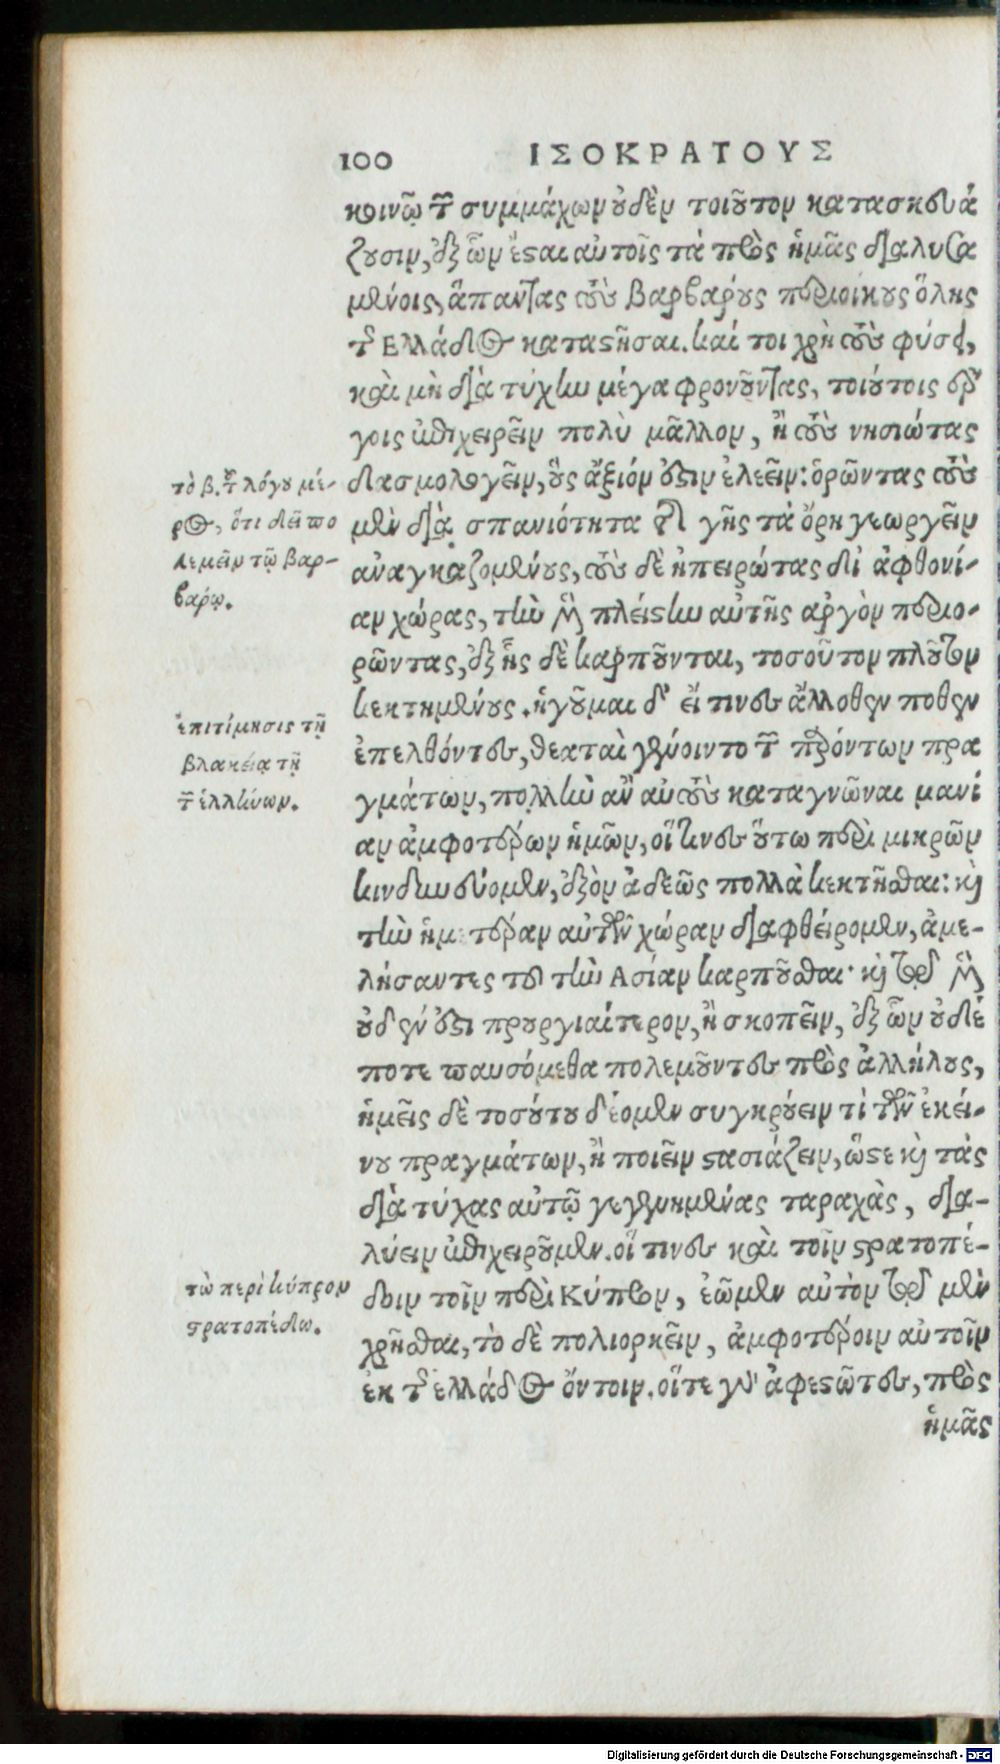 100 ΙΣΟΚΡΑΤΟΥΣ
κοινῷ τῶν συμμάχων οὐδὲν τοιοῦτον κατασκευά
ζουσιν, ἐξ ὧν ἔσαι αὐτοῖς τὰ πρὸς ἡμᾶς διαλυσα
μένοις, ἅπαντας τοὺς βαρβάρους περιοίκους ὅλης
τῆς Ελλάδος καταστῆσαι. καί τοι χρὴ τοὺς φύσει,
καὶ μὴ διὰ τύχην μέγα φρονοῦντας, τοιούτοις ἔρ
γοις ἐπιχειρεῖν πολὺ μᾶλλον, ἢ τοὺς νησιώτας
δασμολογεῖν, οὓς ἄξιόν ἐστιν ἐλεεῖν: ὁρῶντας τοὺς
μὲν διὰ σπανιότητα τῆς γῆς τὰ ὄρη γεωργεῖν
ἀναγκαζομένους, τοὺς δὲ ἠπειρώτας δι' ἀφθονί-
αν χώρας, τὴν μὲν πλείστην αὐτῆς ἀργὸν περιο-
ρῶντας, ἐξ ἧς δὲ καρποῦνται, τοσοῦτον πλοῦτον
κεκτημένους. ἡγοῦμαι δ' εἴ τινες ἄλλοθεν ποθεν
ἐπελθόντες, θεαταὶ γένοιντο τῶν παρόντων πρα
γμάτων, πολλὴν ἂν αὐτοὺς καταγνῶναι μανί
αν ἀμφοτέρων ἡμῶν, οἵτινες οὕτω περὶ μικρῶν
κινδυνεύομεν, ἐξὸν ἀδεῶς πολλὰ κεκτῆσθαι: καὶ
τὴν ἡμετέραν αὐτῶν χώραν διαφθείρομεν, ἀμε-
λήσαντες τοῦ τὴν Ασίαν καρποῦσθαι· καὶ τῷ μὲν
οὐδέν ἐστι προυργιαίτερον, ἢ σκοπεῖν, ἐξ ὧν οὐδέ
ποτε παυσόμεθα πολεμοῦντες πρὸς ἀλλήλους,
ἡμεῖς δὲ τοσούτου δέομεν συγκρούειν τὶ τῶν ἐκεί-
νου πραγμάτων, ἢ ποιεῖν στασιάζειν, ὥστε καὶ τὰς
διὰ τύχας αὐτῷ γεγενημένας ταραχὰς, δια-
λύειν ἐπιχειροῦμεν. οἵ τινες καὶ τοῖν στρατοπέ-
δοιν τοῖν περὶ Κύπρον, ἐῶμεν αὐτὸν τῷ μὲν
χρῆσθαι, τὸ δὲ πολιορκεῖν, ἀμφοτέροιν αὐτοῖν
ἐκ τῆς ελλάδος ὄντοιν. οἵτε γὰρ ἀφεστῶτες, πρὸς
ἡμᾶς
τὸ β. τοῦ λόγου μέ-
ρος, ὅτι δεῖ πο
λεμεῖν τῷ βαρ-
βάρῳ.
ἐπιτίμησις τῇ
βλακείᾳ τῇ
τῶν ἑλλήνων.
τὼ περὶ κύπρον
στρατοπέδω.
Digitalisierung gefördert durch die Deutsche Forschungsgemeinschaft - DFG